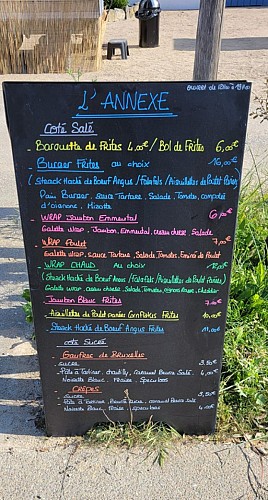 L'ANNEXE
Coté Salé
- Barquette de Frites 4,00€ / Bol de Frites 6,00€
- Burger Frites au choix 16,00€
(Steack Haché de Boeuf Angus / Falafels / Aiguillettes de Poulet Panées)
Pain Burger, sauce Tartare, Salade, Tomate, compotée
d'oignons, Mimolette
- WRAP Jambon Emmental 6,90€
Galette Wrap, Jambon, Emmental, cream cheese, Salade
- WRAP Poulet 7,90€
Galette Wrap, sauce Tartare, Salade, Tomate, Emincé de Poulet
- WRAP CHAUD Au choix
(Steack Haché de Boeuf Angus / Falafels / Aiguillettes de Poulet Panées)
Galette Wrap, cream cheese, Salade, Tomate, oignons, cheddar
- Jambon Blanc Frites
- Aiguillettes de Poulet panées Cornflakes Frites 10,00€
- Steack Haché de Boeuf Angus Frites 11,00€
Coté Sucré
Gaufres de Bruxelles
- sucre 3,50€
- Pâte à Tartiner, chantilly, caramel Beurre Salé 4,00€
Noisette Blanc, Fraise, Speculoos
CRÊPES
- sucre
- Pâte à Tartiner, caramel Beurre Salé
Noisette Blanc, Fraise, Speculoos 4,00€